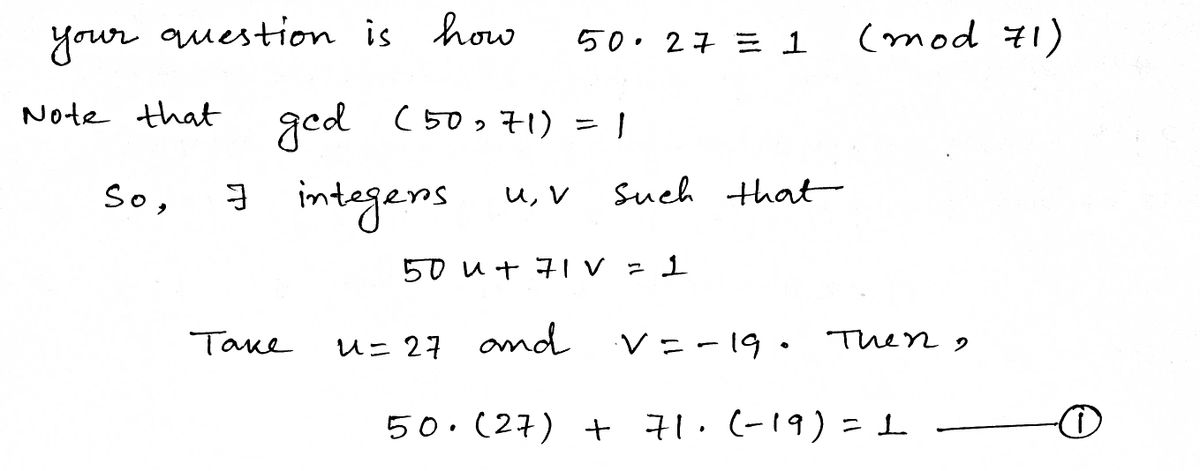 your question is how 50. 27 ≡ 1 (mod 71)
Note that gcd (50, 71) = 1
So, ∃ integers u, v such that
50 u + 71 v = 1
Take u = 27 and v = -19. Then,
50. (27) + 71. (-19) = 1 —— ①